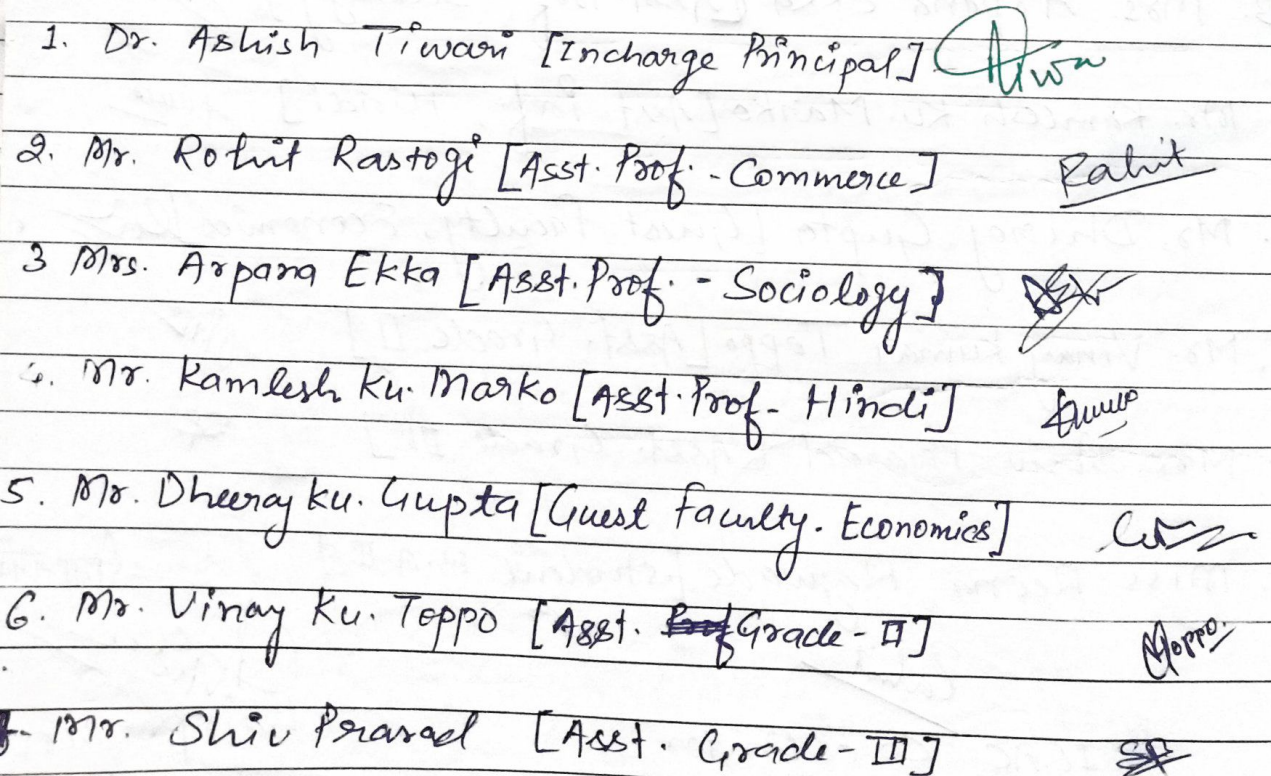 1. Dr. Ashish Tiwari [Incharge Principal]
2. Mr. Rohit Rastogi [Asst. Prof. - Commerce] Rahit
3 Mrs. Arpana Ekka [Asst. Prof. - Sociology]
4. Mr. Kamlesh Ku. Marko [Asst. Prof - Hindi]
5. Mr. Dheeraj Ku. Gupta [Guest Faculty. Economics]
6. Mr. Vinay Ku. Toppo [Asst. Grade - II] Toppo.
Mr. Shiv Prasad [Asst. Grade - III]